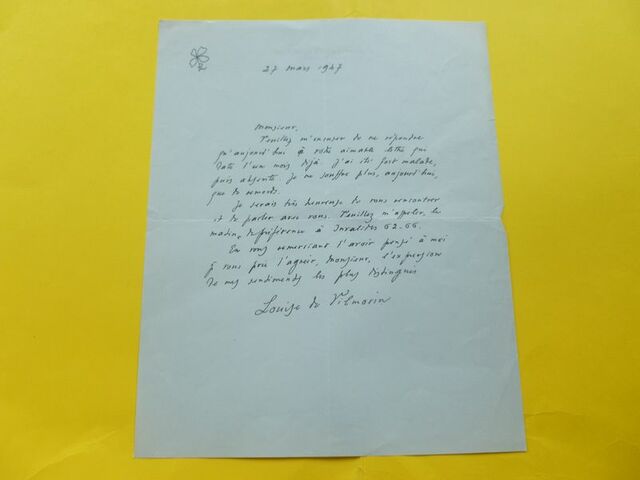 27 mars 1947
Monsieur,
Veuillez m'excuser de ne répondre
qu'aujourd'hui à votre aimable lettre qui
date d'un mois déjà. J'ai été fort malade,
puis absente. Je ne souffre plus, aujourd'hui,
que de remords.
Je serais très heureuse de vous rencontrer
et de parler avec vous. Veuillez m'appeler, le
matin de préférence à Invalides 62.66.
En vous remerciant d'avoir pensé à moi
je vous prie d'agréer, Monsieur, l'expression
de mes sentiments les plus distingués
Louise de Vilmorin